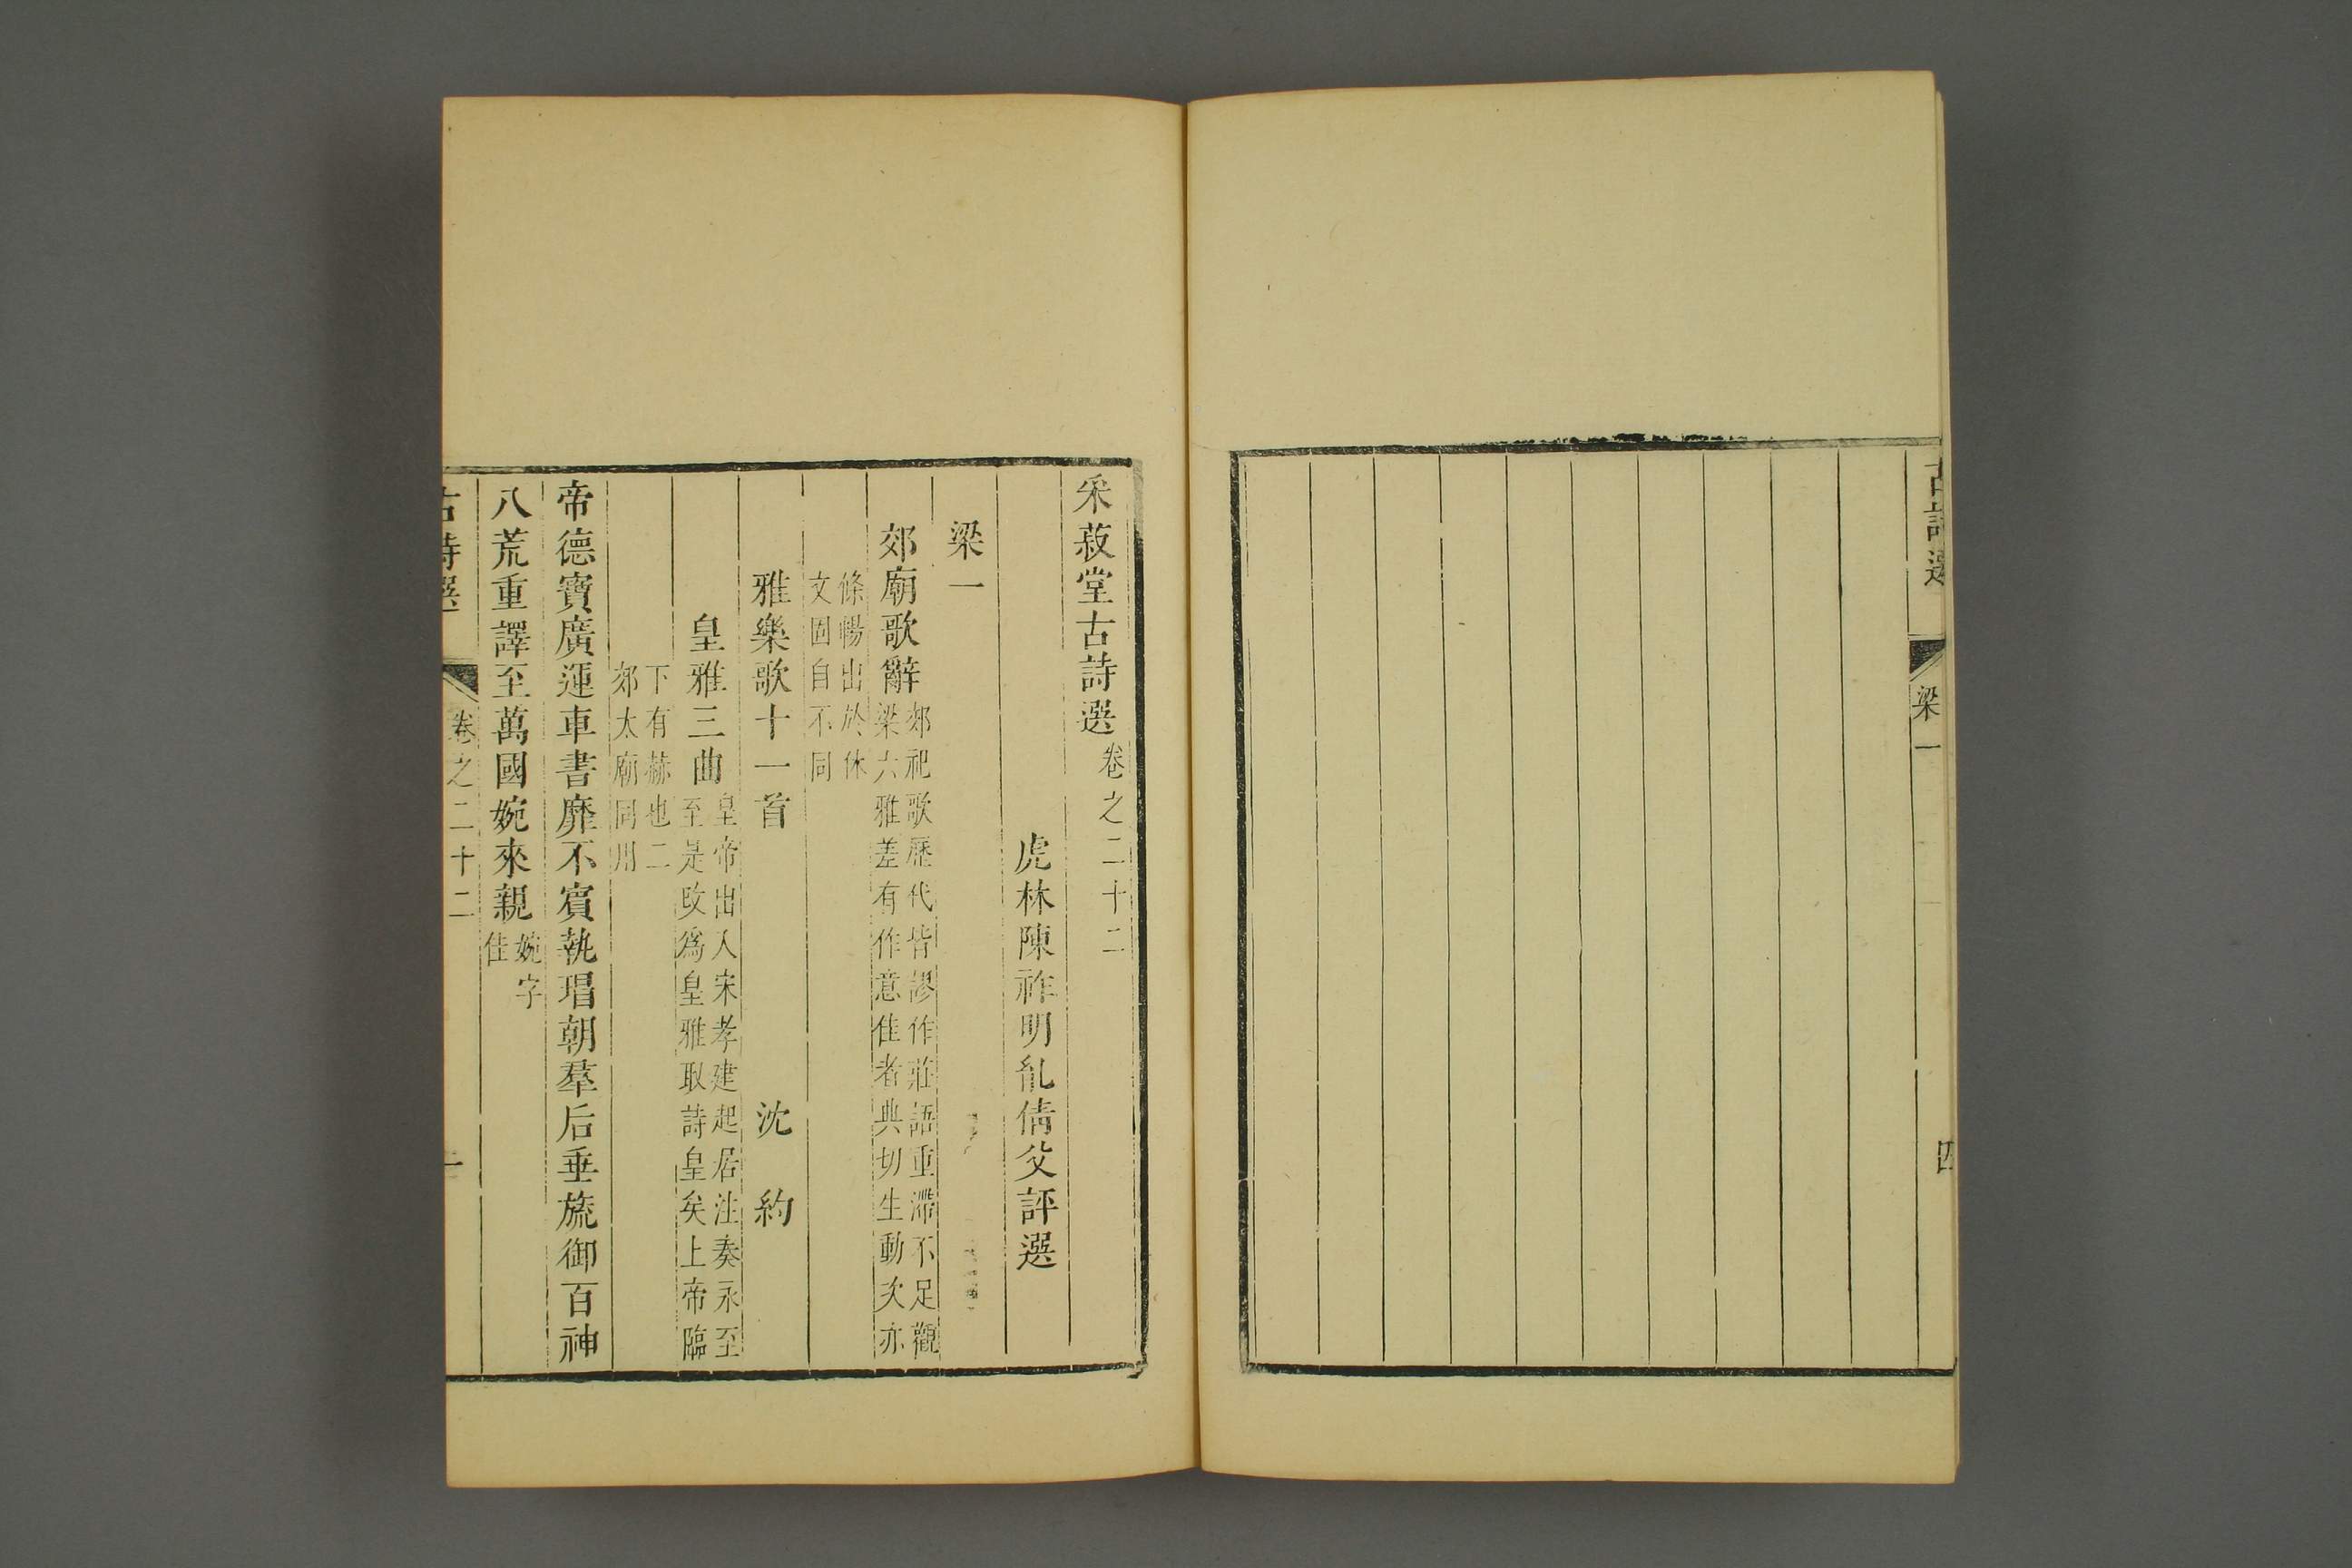 古詩選
梁一
四
采菽堂古詩選卷之二十二
虎林陳祚明胤倩父評選
梁一
郊廟歌辭郊祀歌歷代皆謬作莊語重滯不足觀
梁六雅差有作意佳者典切生動次亦
條暢出於休
文固自不同
雅樂歌十一首 沈約
皇雅三曲皇帝出入宋孝建起居注奏永至
至是改爲皇雅取詩皇矣上帝臨
下有赫也二
郊太廟同用
帝德實廣運車書靡不賓執瑁朝羣后垂旒御百神
八荒重譯至萬國婉來親婉字
佳
古詩選
卷之二十二
一